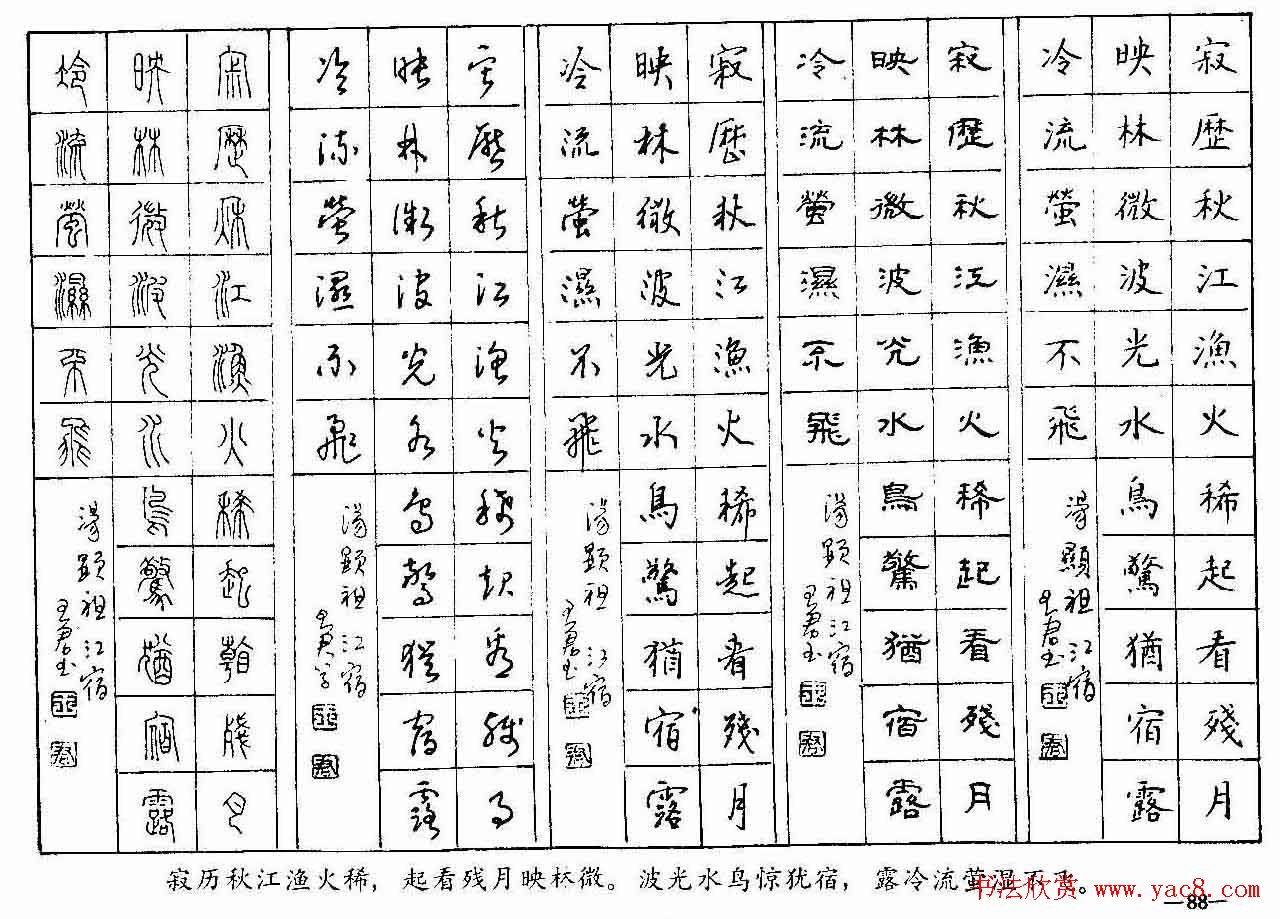 寂歷秋江漁火稀起看殘月
映林微波光水鳥驚猶宿露
冷流螢濕不飛
湯顯祖江宿
王君书
寂歷秋江漁火稀起看殘月
映林微波光水鳥驚猶宿露
冷流螢濕不飛
湯顯祖江宿
王君书
寂歷秋江漁火稀起看殘月
映林微波光水鳥驚猶宿露
冷流螢濕不飛
湯顯祖江宿
王君书
寂歷秋江漁火稀起看殘月
映林微波光水鳥驚猶宿露
冷流螢濕不飛
湯顯祖江宿
寂歷秋江漁火稀起看殘月
映林微波光水鳥驚猶宿露
冷流螢濕不飛
湯顯祖江宿
王君书
寂历秋江渔火稀，起看残月映林微。波光水鸟惊犹宿，露冷流萤湿不飞。
书法欣赏 www.yac8.com
—88—